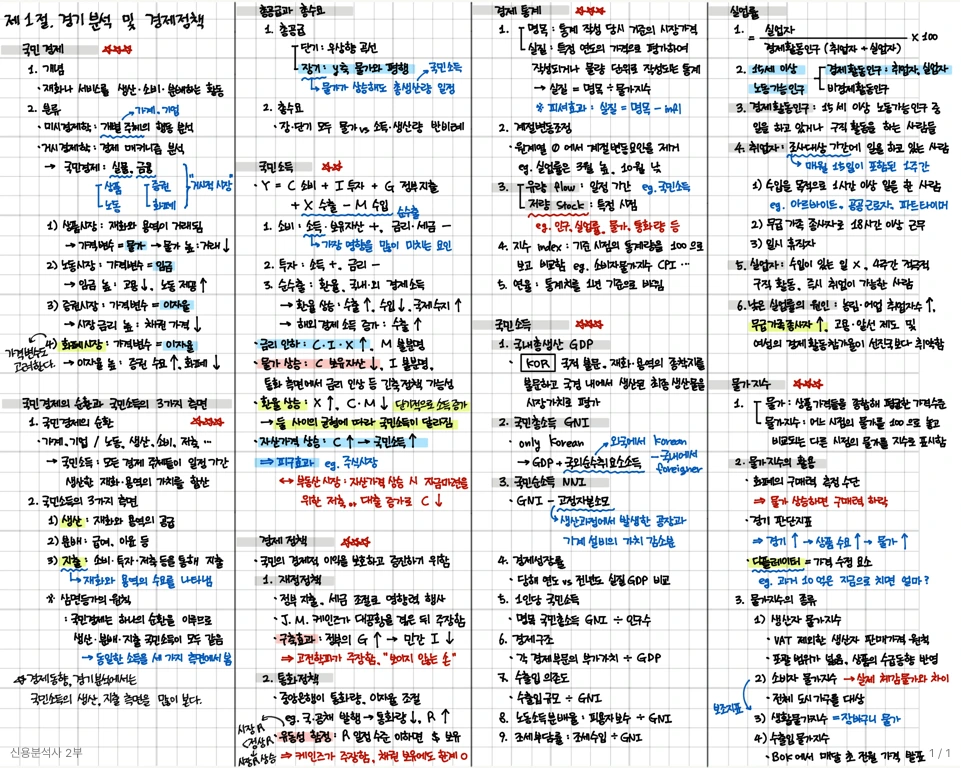 제1절. 경기분석 및 경제정책
국민 경제 ☆☆☆
1. 개념
· 재화나 서비스를 생산·소비·분배하는 활동
2. 분류
가계, 기업
· 미시경제학 : 개별 주체의 행동 분석
· 거시경제학 : 경제 메커니즘 분석
→ 국민경제 : 실물, 금융
상품
노동
증권
화폐
"거시적 시장"
1) 상품시장 : 재화와 용역이 거래됨
→ 가격변수 = 물가 → 물가 높 : 거래 ↓
2) 노동시장 : 가격변수 = 임금
→ 임금 높 : 고용 ↓, 노동 제공 ↑
3) 증권시장 : 가격변수 = 이자율
→ 시장 금리 높 : 채권 가격 ↓
4) 화폐시장 : 가격변수 = 이자율
→ 이자율 높 : 증권 수요 ↑, 화폐 ↓
가격변수도
고려한다.
국민경제의 순환과 국민소득의 3가지 측면
1. 국민경제의 순환 ☆☆☆
· 가계, 기업 / 노동, 생산, 소비, 저축, …
→ 국민소득 : 모든 경제 주체들이 일정 기간
생산한 재화·용역의 가치를 합산
2. 국민소득의 3가지 측면
1) 생산 : 재화와 용역의 공급
2) 분배 : 급여, 이윤 등
3) 지출 : 소비·투자·저축 등을 통해 지출
→ 재화와 용역의 수요를 나타냄
※ 삼면등가의 원칙
: 국민경제는 하나의 순환을 이루므로
생산·분배·지출 국민소득이 모두 같음
→ 동일한 소득을 세 가지 측면에서 봄
경제동향, 경기분석에서는
국민소득의 생산, 지출 측면을 많이 본다.
신용분석사 2부
총공급과 총수요
1. 총공급
단기 : 우상향 곡선
장기 : y축 물가와 평행
국민소득
→ 물가가 상승해도 총생산량 일정
2. 총수요
· 장·단기 모두 물가 vs 소득·생산량 반비례
국민소득 ☆☆
· Y = C 소비 + I 투자 + G 정부지출
+ X 수출 - M 수입
순수출
1. 소비 : 소득·보유자산 +, 금리·세금 -
→ 가장 영향을 많이 미치는 요인
2. 투자 : 소득 +, 금리 -
3. 순수출 : 환율, 국내·외 경제 소득
→ 환율 상승 : 수출 ↑, 수입 ↓, 국제수지 ↑
→ 해외 경제 소득 증가 : 수출 ↑
· 금리 인하 : C·I·X ↑, M 불분명
· 물가 상승 : C 보유자산 ↓, I 불분명,
통화 측면에서 금리 인상 등 긴축정책 가능성
· 환율 상승 : X ↑, C·M ↓ 단기적으로 소득 증가
→ 둘 사이의 균형에 따라 국민소득이 달라짐
· 자산가격 상승 : C ↑ → 국민소득 ↑
⇒ 피구효과 eg. 주식시장
↔ 부동산 시장 : 자산가격 상승 시 자금마련을
위한 저축, or 대출 증가로 C ↓
경제 정책 ☆☆☆
· 국민의 경제적 이익을 보호하고 증진하기 위함
1. 재정정책
· 정부 지출, 세금 조절로 영향력 행사
· J. M. 케인즈가 대공황을 겪은 뒤 주장함
· 구축효과 : 정부의 G ↑ → 민간 I ↓
⇒ 고전학파가 주장함, "보이지 않는 손"
2. 통화정책
· 중앙은행이 통화량, 이자율 조절
eg. 국·공채 발행 → 통화량 ↓, R ↑
· 유동성 함정 : R 일정 수준 이하면 $ 보유
⇒ 케인즈가 주장함, 채권 보유에도 한계 O
시장 R
< 정상 R
→ 시장 R 상승
경제 통계 ☆☆☆
1. 명목 : 통계 작성 당시 기준의 시장가격
실질 : 특정 연도의 가격으로 평가하여
작성되거나 물량 단위로 작성되는 통계
→ 실질 = 명목 ÷ 물가지수
※ 피셔효과 : 실질 = 명목 - infl
2. 계절변동조정
· 원계열 에서 계절변동요인을 제거
eg. 실업률은 3월 높, 10월 낮
3. 유량 flow : 일정 기간 eg. 국민소득
저량 stock : 특정 시점
eg. 인구, 실업률, 물가, 통화량 등
4. 지수 index : 기준 시점의 통계량을 100으로
보고 비교함 eg. 소비자물가지수 CPI …
5. 연율 : 통계치를 1년 기준으로 바꿈
국민소득 ☆☆☆
1. 국내총생산 GDP
· KOR 국적 불문, 재화·용역의 종착지를
불문하고 국경 내에서 생산된 최종 생산물을
시장가치로 평가
2. 국민총소득 GNI
· only Korean
외국에서 Korean
→ GDP + 국외순수취요소소득
- 국내에서 foreigner
3. 국민순소득 NNI
· GNI - 고정자본소모
→ 생산과정에서 발생한 공장과
기계 설비의 가치 감소분
4. 경제성장률
· 당해 연도 vs 전년도 실질 GDP 비교
5. 1인당 국민소득
· 명목 국민총소득 GNI ÷ 인구수
6. 경제구조
· 각 경제부문의 부가가치 ÷ GDP
7. 수출입 의존도
· 수출입규모 ÷ GNI
8. 노동소득분배율 : 피용자보수 ÷ GNI
9. 조세부담률 : 조세수입 ÷ GNI
실업률
1. = 실업자
경제활동인구 (취업자 + 실업자)
× 100
2. 15세 이상
노동가능인구
경제활동인구 : 취업자, 실업자
비경제활동인구
3. 경제활동인구 : 15세 이상 노동가능인구 중
일을 하고 있거나 구직 활동을 하는 사람들
4. 취업자 : 조사대상 기간에 일을 하고 있는 사람
→ 매월 15일이 포함된 1주간
1) 수입을 목적으로 1시간 이상 일을 한 사람
eg. 아르바이트, 공공근로자, 파트타이머
2) 무급 가족 종사자로 18시간 이상 근무
3) 일시 휴직자
5. 실업자 : 수입이 있는 일 X, 4주간 적극적
구직 활동, 즉시 취업이 가능한 사람
6. 낮은 실업률의 원인 : 농림·어업 취업자수 ↑,
무급가족종사자 ↑, 고용·알선 제도 및
여성의 경제활동참가율이 선진국보다 취약함
물가지수 ☆☆☆
1. 물가 : 상품가격들을 종합해 평균한 가격수준
물가지수 : 어느 시점의 물가를 100으로 놓고
비교되는 다른 시점의 물가를 지수로 표시함
2. 물가지수의 활용
· 화폐의 구매력 측정 수단
⇒ 물가 상승하면 구매력 하락
· 경기 판단지표
⇒ 경기 ↑ → 상품 수요 ↑ → 물가 ↑
· 디플레이터 = 가격 수정 요소
eg. 과거 10억은 지금으로 치면 얼마?
3. 물가지수의 종류
1) 생산자 물가지수
· VAT 제외한 생산자 판매가격 원칙
· 포괄 범위가 넓음, 상품의 수급동향 반영
2) 소비자 물가지수 → 실제 체감물가와 차이
· 전체 도시가구를 대상
보조지표
3) 생활물가지수 = 장바구니 물가
4) 수출입물가지수
· BOK에서 매달 초 전월 가격 발표
1 / 1